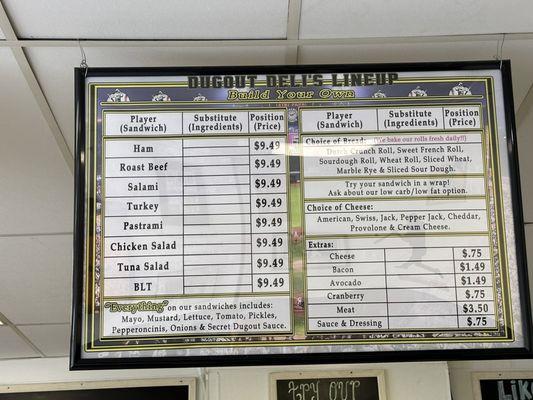 DUGOUT DELI'S LINEUP
Build Your Own
Player (Sandwich)
Substitute (Ingredients)
Position (Price)
Ham $9.49
Roast Beef $9.49
Salami $9.49
Turkey $9.49
Pastrami $9.49
Chicken Salad $9.49
Tuna Salad $9.49
BLT $9.49
"Everything" on our sandwiches includes:
Mayo, Mustard, Lettuce, Tomato, Pickles,
Pepperoncinis, Onions & Secret Dugout Sauce.
Player (Sandwich)
Substitute (Ingredients)
Position (Price)
Choice of Bread: (We bake our rolls fresh daily!!)
Dutch Crunch Roll, Sweet French Roll,
Sourdough Roll, Wheat Roll, Sliced Wheat,
Marble Rye & Sliced Sour Dough.
Try your sandwich in a wrap!
Ask about our low carb/low fat option.
Choice of Cheese:
American, Swiss, Jack, Pepper Jack, Cheddar,
Provolone & Cream Cheese.
Extras:
Cheese $.75
Bacon $1.49
Avocado $1.49
Cranberry $.75
Meat $3.50
Sauce & Dressing $.75
TRY OUT
LIKE